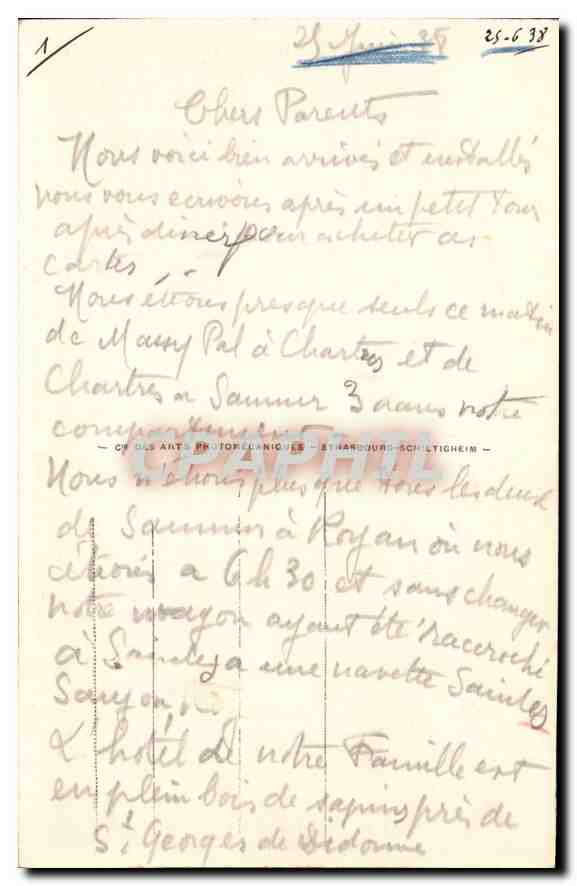 1
25 Juin 38
25-6 38
Chers Parents
Nous voici bien arrivés et installés
nous vous écrivons après un petit tour
après dîner pour acheter des
cartes...
Nous étions presque seuls ce matin
de Massy Pal à Chartres et de
Chartres a Saumur 3 dans notre
compartiment
— Cie DES ARTS PHOTOMÉCANIQUES — STRASBOURG-SCHILTIGHEIM —
CPAPHIL
Nous n'étions plus que tous les deux
de Saumur à Royan où nous
étions a 6h30 et sans changer
notre wagon ayant été raccroché
à Saintes a une navette Saintes
Saujon
L'hôtel de notre Famille est
en plein bois de sapins près de
St Georges de Didonne